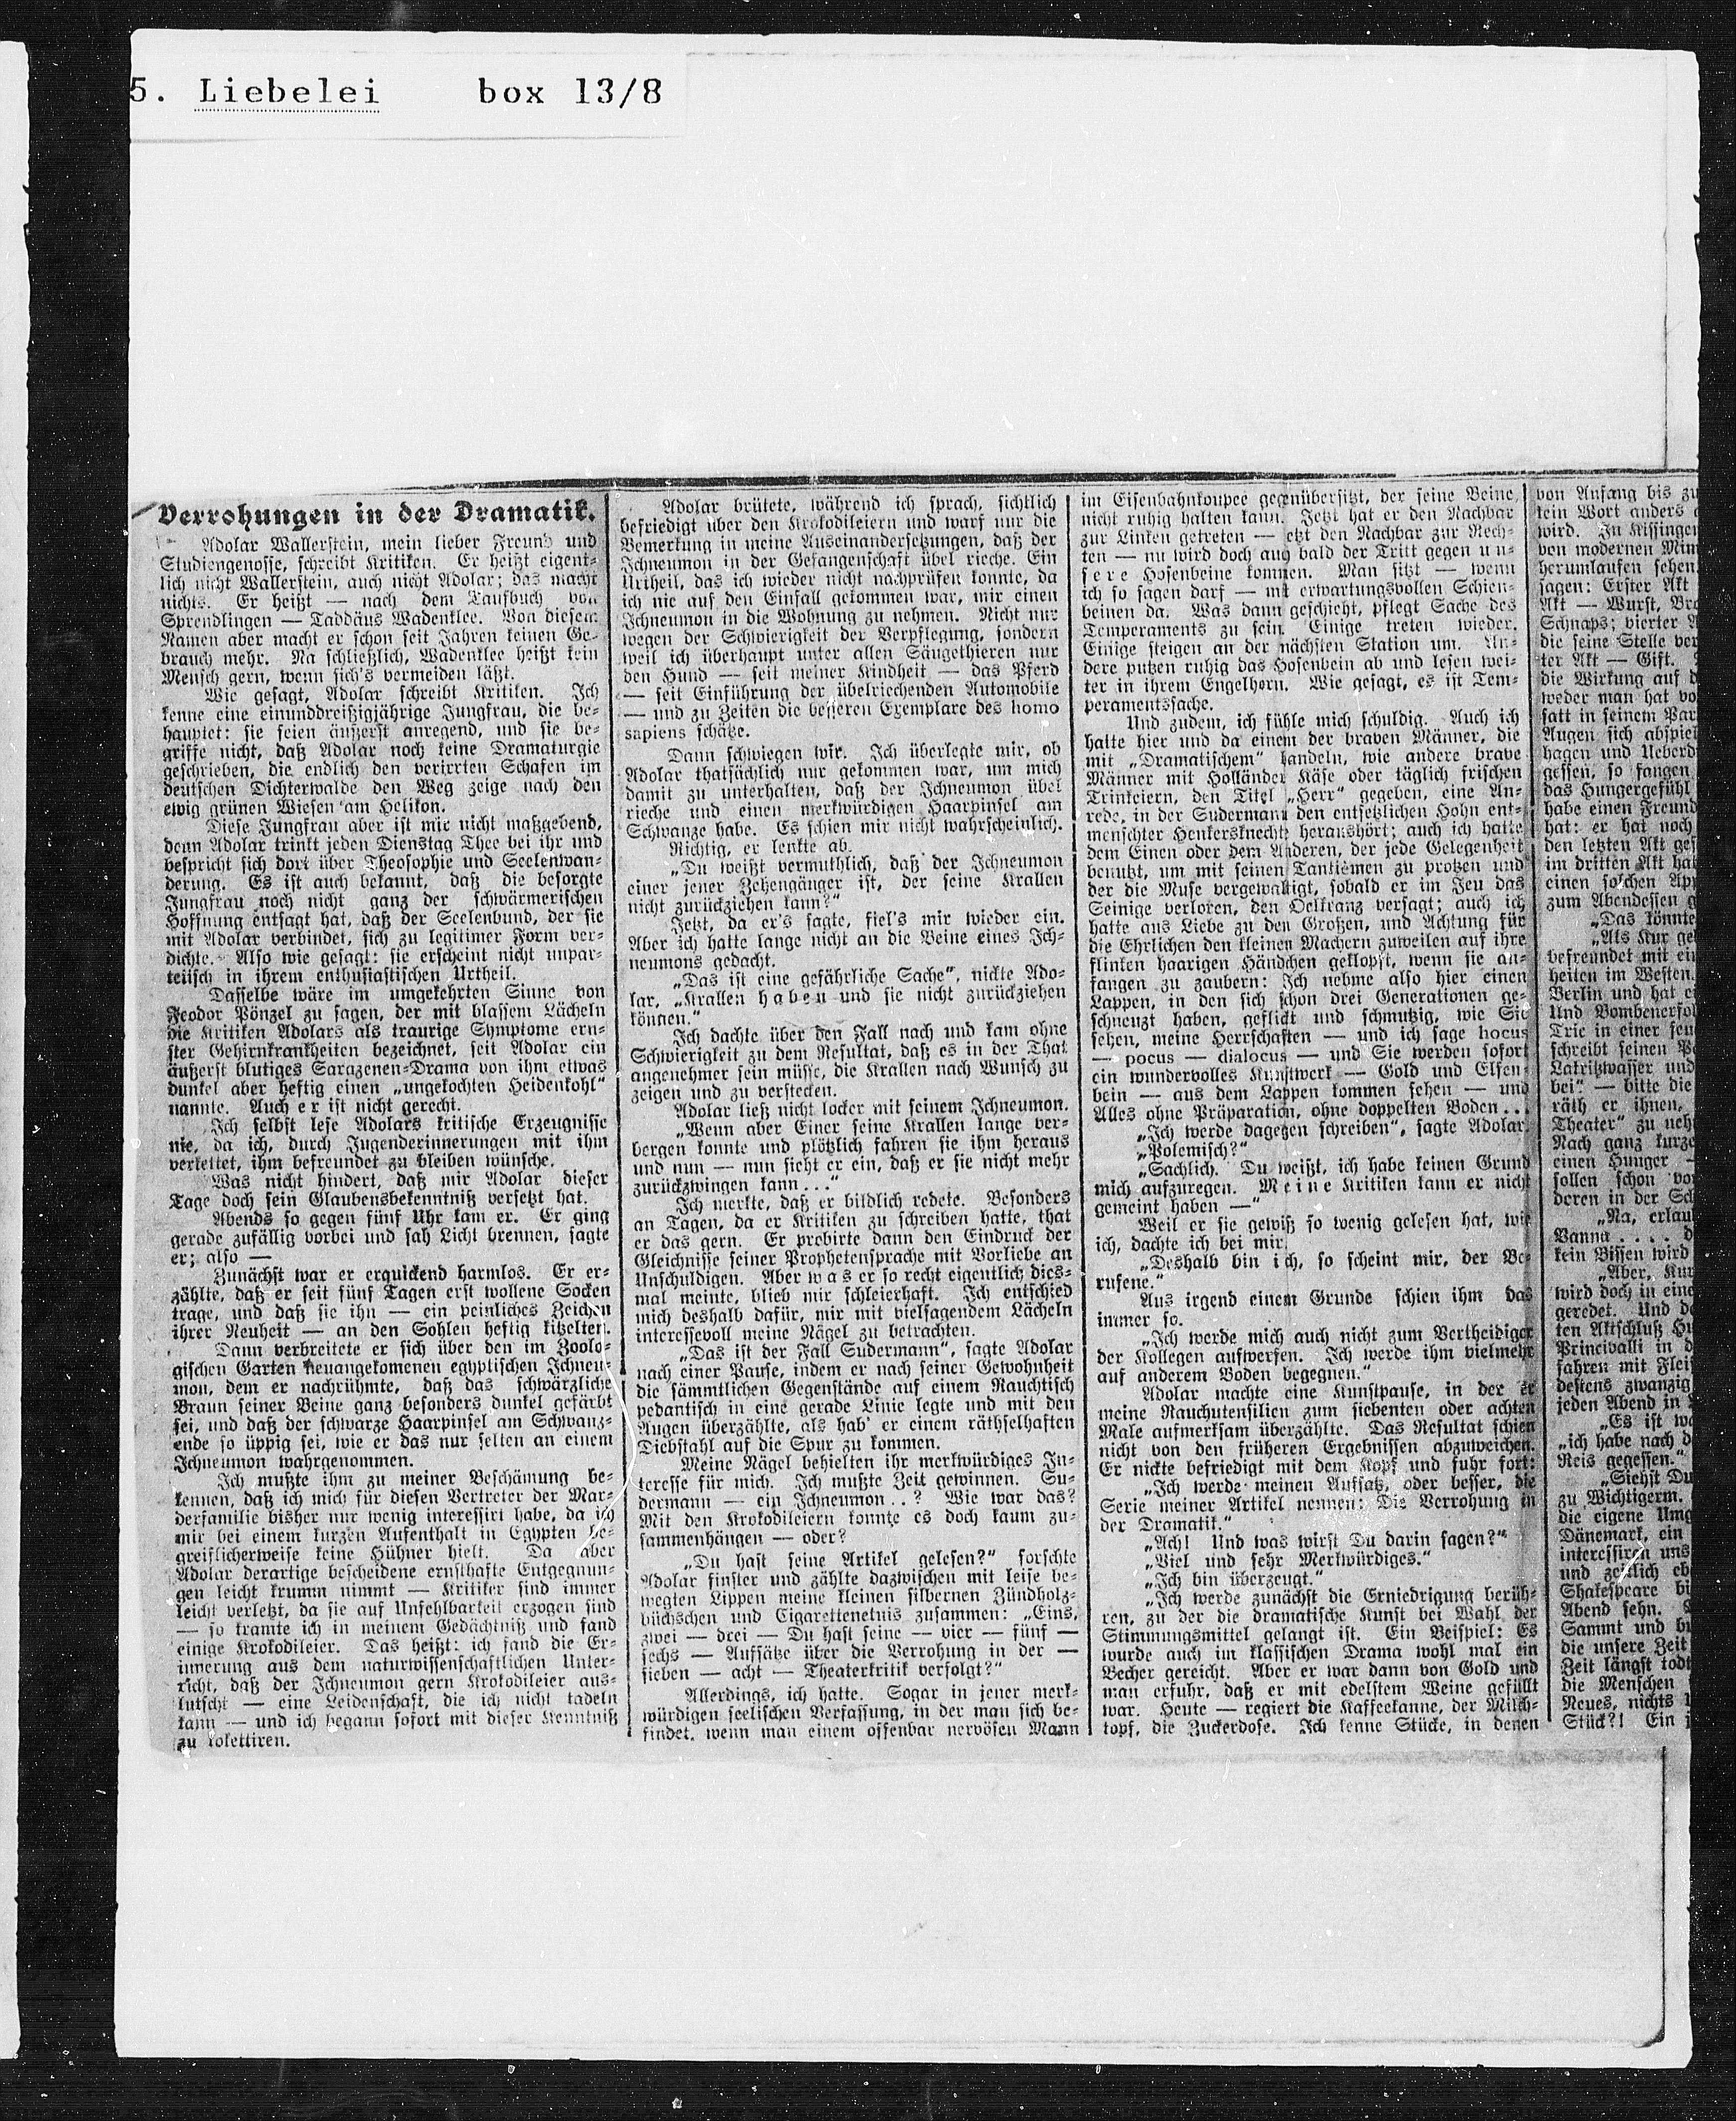 5. Liebelei box 13/8
Verrohungen in der Dramatik.
Adolar Wallerstein, mein lieber Freund und
Studiengenosse, schreibt Kritiken. Er heißt eigent-
lich nicht Wallerstein, auch nicht Adolar; das macht
nichts. Er heißt — nach dem Taufbuch von
Sprendlingen — Taddäus Wadenklee. Von diesem
Namen aber macht er schon seit Jahren keinen Ge-
brauch mehr. Na schließlich, Wadenklee heißt kein
Mensch gern, wenn sich's vermeiden läßt.
Wie gesagt, Adolar schreibt Kritiken. Ich
kenne eine einunddreißigjährige Jungfrau, die be-
hauptet: sie seien äußerst anregend, und sie be-
griffe nicht, daß Adolar noch keine Dramaturgie
geschrieben, die endlich den verirrten Schafen im
deutschen Dichterwalde den Weg zeige nach den
ewig grünen Wiesen am Helikon.
Diese Jungfrau aber ist mir nicht maßgebend,
denn Adolar trinkt jeden Dienstag Thee bei ihr und
bespricht sich dort über Theosophie und Seelenwan-
derung. Es ist auch bekannt, daß die besorgte
Jungfrau noch nicht ganz der schwärmerischen
Hoffnung entsagt hat, daß der Seelenbund, der sie
mit Adolar verbindet, sich zu legitimer Form ver-
dichte. Also wie gesagt: sie erscheint nicht unpar-
teiisch in ihrem enthusiastischen Urtheil.
Dasselbe wäre im umgekehrten Sinne von
Feodor Pönzel zu sagen, der mit blassem Lächeln
die Kritiken Adolars als traurige Symptome ern-
ster Gehirnkrankheiten bezeichnet, seit Adolar ein
äußerst blutiges Sarazenen-Drama von ihm etwas
dunkel aber heftig einen „ungekochten Heidenkohl"
nannte. Auch er ist nicht gerecht.
Ich selbst lese Adolars kritische Erzeugnisse
nie, da ich, durch Jugenderinnerungen mit ihm
verkettet, ihm befreundet zu bleiben wünsche.
Was nicht hindert, daß mir Adolar dieser
Tage doch sein Glaubensbekenntniß versetzt hat.
Abends so gegen fünf Uhr kam er. Er ging
gerade zufällig vorbei und sah Licht brennen, sagte
er; also —
Zunächst war er erquickend harmlos. Er er-
zählte, daß er seit fünf Tagen erst wollene Socken
trage, und daß sie ihn — ein peinliches Zeichen
ihrer Neuheit — an den Sohlen heftig kitzelten.
Dann verbreitete er sich über den im Zoolo-
gischen Garten neuangekomenen egyptischen Ichneu-
mon, dem er nachrühmte, daß das schwärzliche
Braun seiner Beine ganz besonders dunkel gefärbt
sei, und daß der schwarze Haarpinsel am Schwanz-
ende so üppig sei, wie er das nur selten an einem
Ichneumon wahrgenommen.
Ich mußte ihm zu meiner Beschämung be-
kennen, daß ich mich für diesen Vertreter der Mar-
derfamilie bisher nur wenig interessirt habe, da ich
mir bei einem kurzen Aufenthalt in Egypten be-
greiflicherweise keine Hühner hielt. Da aber
Adolar derartige bescheidene ernsthafte Entgegnun-
gen leicht krumm nimmt — Kritiker sind immer
leicht verletzt, da sie auf Unfehlbarkeit erzogen sind
— so kramte ich in meinem Gedächtniß und fand
einige Krokodileier. Das heißt: ich fand die Er-
innerung aus dem naturwissenschaftlichen Unter-
richt, daß der Ichneumon gern Krokodileier aus-
lutscht — eine Leidenschaft, die ich nicht tadeln
kann — und ich begann sofort mit dieser Kenntniß
zu kokettiren.
Adolar brütete, während ich sprach, sichtlich
befriedigt über den Krokodileiern und warf nur die
Bemerkung in meine Auseinandersetzungen, daß der
Ichneumon in der Gefangenschaft übel rieche. Ein
Urtheil, das ich wieder nicht nachprüfen konnte, da
ich nie auf den Einfall gekommen war, mir einen
Ichneumon in die Wohnung zu nehmen. Nicht nur
wegen der Schwierigkeit der Verpflegung, sondern
weil ich überhaupt unter allen Säugethieren nur
den Hund — seit meiner Kindheit — das Pferd
— seit Einführung der übelriechenden Automobile
— und zu Zeiten die besseren Exemplare des homo
sapiens schätze.
Dann schwiegen wir. Ich überlegte mir, ob
Adolar thatsächlich nur gekommen war, um mich
damit zu unterhalten, daß der Ichneumon übel
rieche und einen merkwürdigen Haarpinsel am
Schwanze habe. Es schien mir nicht wahrscheinlich.
Richtig, er lenkte ab.
„Du weißt vermuthlich, daß der Ichneumon
einer jener Zehengänger ist, der seine Krallen
nicht zurückziehen kann?"
Jetzt, da er's sagte, fiel's mir wieder ein.
Aber ich hatte lange nicht an die Beine eines Ich-
neumons gedacht.
„Das ist eine gefährliche Sache", nickte Ado-
lar, „Krallen haben und sie nicht zurückziehen
können."
Ich dachte über den Fall nach und kam ohne
Schwierigkeit zu dem Resultat, daß es in der That
angenehmer sein müsse, die Krallen nach Wunsch zu
zeigen und zu verstecken.
Adolar ließ nicht locker mit seinem Ichneumon.
„Wenn aber Einer seine Krallen lange ver-
bergen konnte und plötzlich fahren sie ihm heraus
und nun — nun sieht er ein, daß er sie nicht mehr
zurückzwingen kann..."
Ich merkte, daß er bildlich redete. Besonders
an Tagen, da er Kritiken zu schreiben hatte, that
er das gern. Er probirte dann den Eindruck der
Gleichnisse seiner Prophetensprache mit Vorliebe an
Unschuldigen. Aber was er so recht eigentlich dies-
mal meinte, blieb mir schleierhaft. Ich entschied
mich deshalb dafür, mir mit vielsagendem Lächeln
interessevoll meine Nägel zu betrachten.
„Das ist der Fall Sudermann", sagte Adolar
nach einer Pause, indem er nach seiner Gewohnheit
die sämmtlichen Gegenstände auf einem Rauchtisch
pedantisch in eine gerade Linie legte und mit den
Augen überzählte, als hab' er einem räthselhaften
Diebstahl auf die Spur zu kommen.
Meine Nägel behielten ihr merkwürdiges In-
teresse für mich. Ich mußte Zeit gewinnen. Su-
dermann — ein Ichneumon..? Wie war das?
Mit den Krokodileiern konnte es doch kaum zu-
sammenhängen — oder?
„Du hast seine Artikel gelesen?" forschte
Adolar finster und zählte dazwischen mit leise be-
wegten Lippen meine kleinen silbernen Zündholz-
büchschen und Cigarettenetuis zusammen: „Eins,
zwei — drei — Du hast seine — vier — fünf —
sechs — Aufsätze über die Verrohung in der —
sieben — acht — Theaterkritik verfolgt?"
Allerdings, ich hatte. Sogar in jener merk-
würdigen seelischen Verfassung, in der man sich be-
findet, wenn man einem offenbar nervösen Mann
im Eisenbahnkoupee gegenübersitzt, der seine Beine
nicht ruhig halten kann. Jetzt hat er den Nachbar
zur Linken getreten — jetzt bald den Nachbar zur Rech-
ten — nu wird doch auch bald der Tritt gegen un-
sere Hosenbeine kommen. Man sitzt — wenn
ich so sagen darf — mit erwartungsvollen Schien-
beinen da. Was dann geschieht, pflegt Sache des
Temperaments zu sein. Einige treten wieder.
Einige steigen an der nächsten Station um. An-
dere putzen ruhig das Hosenbein ab und lesen wei-
ter in ihrem Engelhorn. Wie gesagt, es ist Tem-
peramentssache.
Und zudem, ich fühle mich schuldig. Auch ich
hatte hier und da einem der braven Männer, die
mit „Dramatischem" handeln, wie andere brave
Männer mit Holländer Käse oder täglich frischen
Trinkeiern, den Titel „Herr" gegeben, eine An-
rede, in der Sudermann den entsetzlichen Hohn ent-
menschter Henkersknechte heraushört; auch ich hatte
dem Einen oder dem Anderen, der jede Gelegenheit
benutzt, um mit seinen Tantièmen zu protzen und
der die Muse vergewaltigt, sobald er im Jeu das
Seinige verloren, den Oelkranz versagt; auch ich
hatte aus Liebe zu den Großen, und Achtung für
die Ehrlichen den kleinen Machern zuweilen auf ihre
flinken haarigen Händchen geklopft, wenn sie an-
fangen zu zaubern: Ich nehme also hier einen
Lappen, in den sich schon drei Generationen ge-
schneuzt haben, geflickt und schmutzig, wie Sie
sehen, meine Herrschaften — und ich sage hocus
— pocus — dialocus — und Sie werden sofort
ein wundervolles Kunstwerk — Gold und Elfen-
bein — aus dem Lappen kommen sehen — und
Alles ohne Präparation, ohne doppelten Boden...
„Ich werde dagegen schreiben", sagte Adolar.
„Polemisch?"
„Sachlich. Du weißt, ich habe keinen Grund
mich aufzuregen. Meine Kritiken kann er nicht
gemeint haben —"
Weil er sie gewiß so wenig gelesen hat, wie
ich, dachte ich bei mir.
„Deshalb bin ich, so scheint mir, der Be-
rufene."
Aus irgend einem Grunde schien ihm das
immer so.
„Ich werde mich auch nicht zum Vertheidiger
der Kollegen aufwerfen. Ich werde ihm vielmehr
auf anderem Boden begegnen."
Adolar machte eine Kunstpause, in der er
meine Rauchutensilien zum siebenten oder achten
Male aufmerksam überzählte. Das Resultat schien
nicht von den früheren Ergebnissen abzuweichen.
Er nickte befriedigt mit dem Kopf und fuhr fort:
„Ich werde meinen Aufsatz, oder besser, die
Serie meiner Artikel nennen: Die Verrohung in
der Dramatik."
„Ach! Und was wirst Du darin sagen?"
„Viel und sehr Merkwürdiges."
„Ich bin überzeugt."
„Ich werde zunächst die Erniedrigung berüh-
ren, zu der die dramatische Kunst bei Wahl der
Stimmungsmittel gelangt ist. Ein Beispiel: Es
wurde auch im klassischen Drama wohl mal ein
Becher gereicht. Aber er war dann von Gold und
man erfuhr, daß er mit edelstem Weine gefüllt
war. Heute — regiert die Kaffeekanne, der Milch-
topf, die Zuckerdose. Ich kenne Stücke, in denen
von Anfang bis zu
kein Wort anders
wird. In Kissingen
von modernen
herumlaufen sehen
sagen: Erster Akt
Akt — Wurst,
Schnaps; vierter
die seine Stelle
ter Akt — Gift.
die Wirkung auf
weder man hat
satt in seinem
Augen sich
hagen und
gessen, so fangen
das Hungergefühl
habe einen Freund
hat: er hat noch
den letzten Akt
im dritten Akt
einen solchen
zum Abendessen
„Das könnte
„Als Kur
befreundet mit
heiten im Westen.
Berlin und hat
Und
Tric in einer
schreibt seinen
Lakritzwasser und
bei" — bitte die
räth er ihnen,
Theater" zu
Nach ganz
einen Hunger
sollen schon
deren in der
„Na,
Vanna....
kein Bissen wird
„Aber,
wird doch in
geredet. Und
ten Aktschluß
Principalli in
fahren mit
destens zwanzig
jeden Abend in
„Es ist
„ich habe nach
Reis gegessen."
„Siehst Du
zu Wichtigerm.
die eigene
Dänemark, ein
interessiren uns
und
Shakespeare
Abend sehn.
Sammt und
die unsere Zeit
Zeit längst todt
die Menschen
Neues, nichts
Stück?! Ein